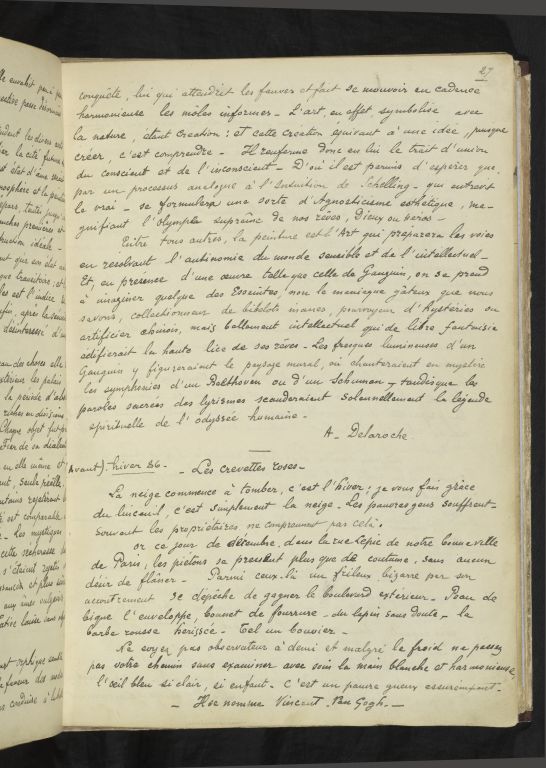 27
conquête, lui qui attendrit les fauves et fait se mouvoir en cadence
harmonieuse les môles informes - L'art, en effet, symbolise avec
la nature, étant Création : et cette Création équivaut à une idée, puisque
créer, c'est comprendre - Il renferme donc en lui le trait d'union
du conscient et de l'inconscient - D'où il est permis d'espérer que,
par un processus analogue à l'Intuition de Schelling - qui entrevit
le vrai - se formulera une sorte d'Agnosticisme esthétique, ma-
gnifiant l'Olympe suprême de nos rêves, Dieux ou héros -
Entre tous autres, la peinture est l'Art qui préparera les voies
en resolvant l'antinomie du monde sensible et de l'intellectuel -
Et, en présence d'une œuvre telle que celle de Gauguin, on se prend
à imaginer quelque des Esseintes, non le maniaque gâteux que nous
savons, collectionneur de bibelots inanes, pourvoyeur d'hystéries ou
artificier chinois, mais bellement intellectuel qui de libre fantaisie
édifierait la haute lice de ses rêves - Les fresques lumineuses d'un
Gauguin y figureraient le paysage mural, où chanteraient en mystère
les symphonies d'un Beethoven ou d'un Schuman, tandis que les
paroles sacrées des lyrismes scanderaient solennellement la légende
spirituelle de l'odyssée humaine -
A - Delaroche.
Avant) - hiver 86 - - Les crevettes roses -
La neige commence à tomber, c'est l'hiver : je vous fais grâce
du linceuil, c'est simplement la neige. Les pauvres gens souffrent -
Souvent les propriétaires ne comprennent pas celà.
Or ce jour de décembre, dans la rue Lepic de notre bonne ville
de Paris, les piétons se pressent plus que de coutume, sans aucun
désir de flâner - Parmi ceux-là un frileux bizarre par son
accoutrement se dépêche de gagner le boulevard extérieur. Peau de
bique l'enveloppe, bonnet de fourrure - du lapin sans doute, la
barbe rousse herisée - Tel un bouvier -
Ne soyez pas observateur à demi et malgré le froid ne passez
pas votre chemin sans examiner avec soin la main blanche et harmonieuse,
l'œil bleu si clair, si enfant. C'est un pauvre gueux assurément -
- Il se nomme Vincent Van Gogh. -